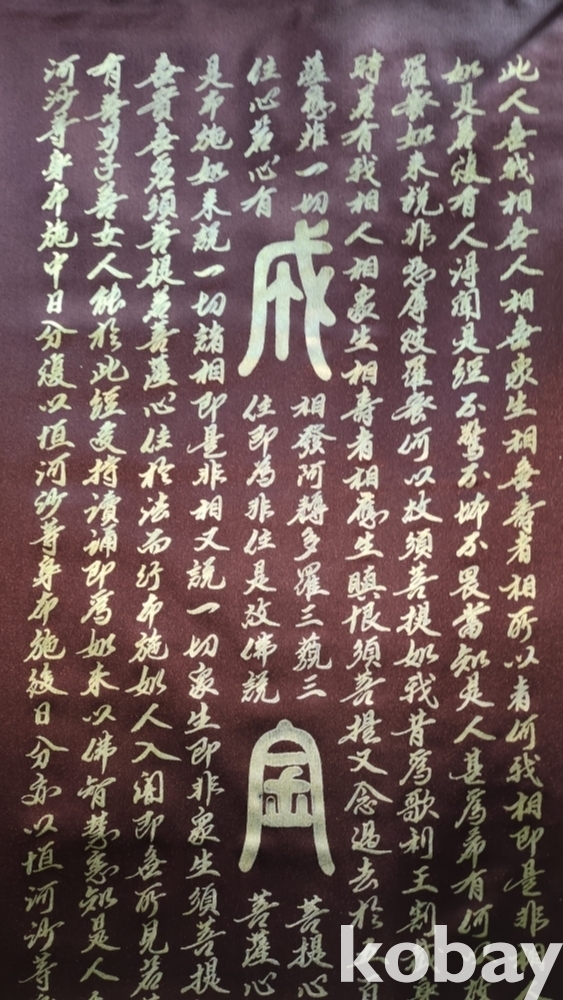 此人無我相無人相無衆生相無壽者相所以者何我相即是非
如是若復有人得聞是經不驚不怖不畏當知是人甚爲希有何
羅蜜如來說非忍辱波羅蜜何以故須菩提如我昔爲歌利王割
時若有我相人相衆生相壽者相應生瞋恨須菩提又念過去於
薩應離一切
住心若心有
戒
相發阿耨多羅三藐三
住即爲非住是故佛說
金
菩提心
菩薩心
是布施如來說一切諸相即是非相又說一切衆生即非衆生須菩提
無實無虛須菩提若菩薩心住於法而行布施如人入闇即無所見若
有善男子善女人能於此經受持讀誦即爲如來以佛智慧悉知是人
河沙等身布施中日分復以恒河沙等身布施後日分亦以恒河沙等
kobay